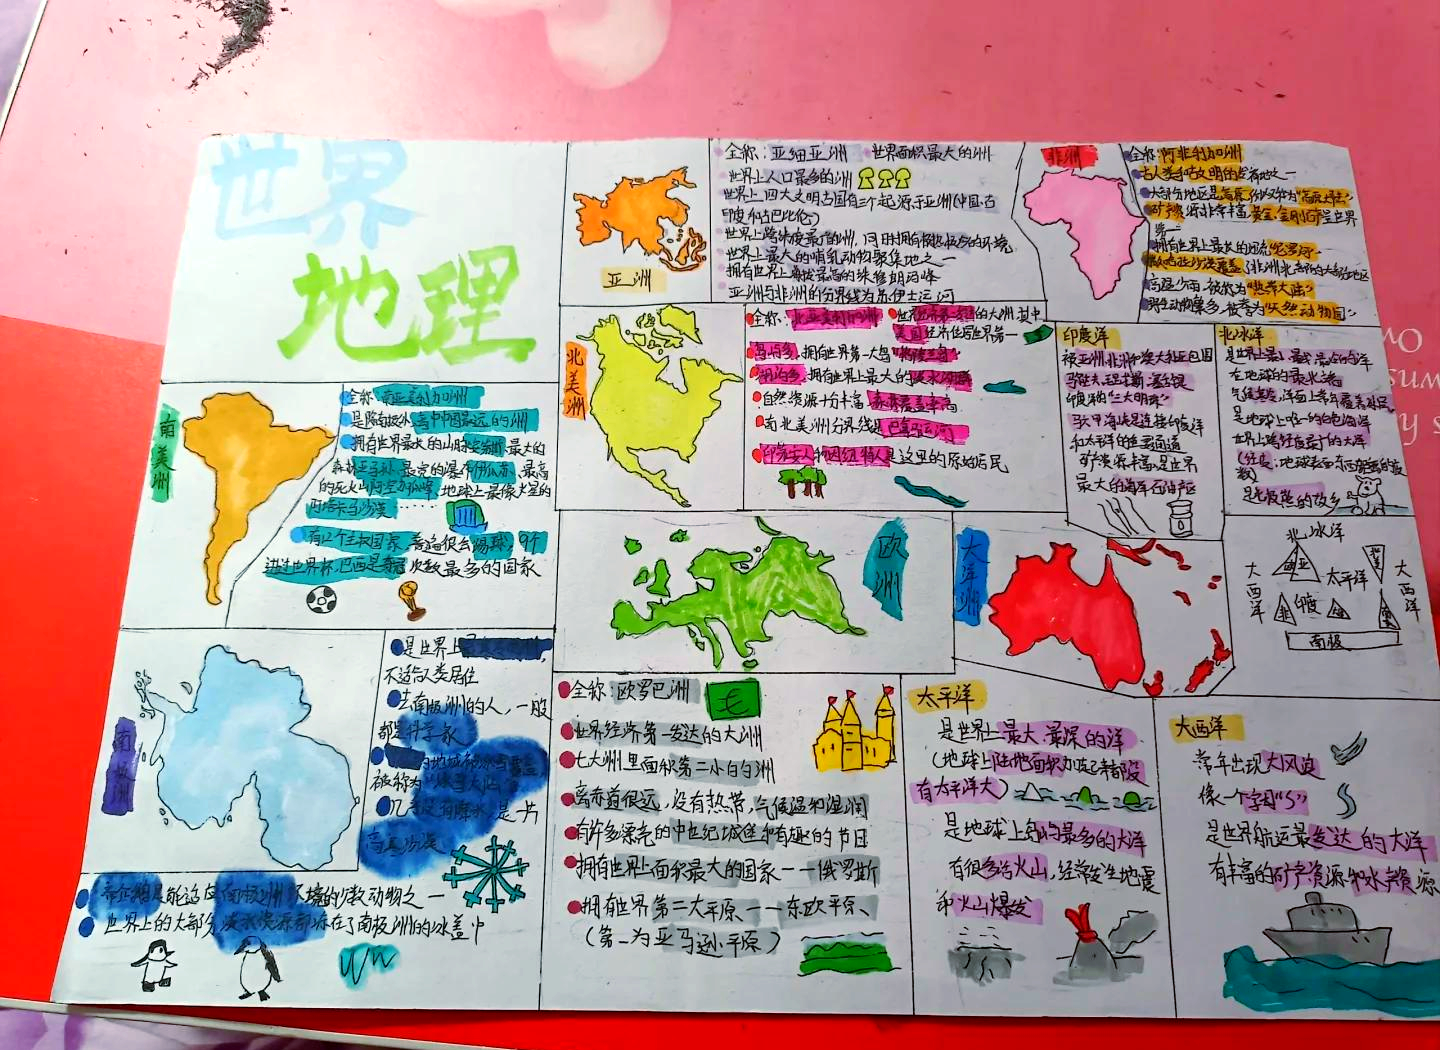 世界
地理
亚洲
全称：亚细亚洲 世界面积最大的洲
世界上人口最多的洲
世界上四大文明古国有三个起源于亚洲（中国、古
印度和古巴比伦）
世界上跨纬度最广的洲，同时拥有
的环境
世界上最大的哺乳动物聚集地之一
拥有世界上海拔最高的珠穆朗玛峰
亚洲与非洲的分界线为苏伊士运河
非洲
全称：阿非利加洲
古人类和古文明的发祥地之一
大部分地区是高原，所以称为"高原大陆"
矿产资源非常丰富，黄金、金刚石产量世界
第一
拥有世界上最大的河流"尼罗河"
覆盖了非洲北部的大部分地区
被称为"热带大陆"
野生动物繁多，被誉为"天然动物园"
北美洲
全称：北亚美利加洲 世界经济第一的大洲，其中
美国经济位居世界第一
岛屿多，拥有世界第一大岛"格陵兰岛"
湖泊多，拥有世界上最大的淡水湖群
自然资源十分丰富，森林覆盖率高
南北美洲分界线是巴拿马运河
印第安人和因纽特人是这里的原始居民
印度洋
被亚洲、非洲和澳大利亚包围
印度洋的"三大明珠"
马六甲海峡是连接印度洋
和太平洋的重要通道
矿产资源丰富，是世界
最大的海洋石油产区
北冰洋
是世界上最小、最浅、最冷的洋
在地球的最北端
是地球上唯一的白色海洋
世界上跨经度最广的大洋
（经度：地球表面东西距离的度
数）
是北极熊的故乡
南美洲
全称：南亚美利加洲
是陆地上离中国最远的洲
拥有世界最长的山脉安第斯，最大的
森林亚马孙，最宽的瀑布伊瓜苏，最高
的死火山阿空加瓜峰，地球上最像火星的
阿塔卡马沙漠
有12个主权国家，普遍很会踢球，9个
进过世界杯，巴西是夺冠次数最多的国家
欧洲
大洋洲
北冰洋
大西洋
北美
亚
太平洋
大西洋
非
印度
南极
南极洲
是世界上
不适合人类居住
去南极洲的人，一般
都是科学家
的地域被冰雪覆盖，
被称为
几乎没有降水，是一片
帝企鹅是能适应南极洲环境的少数动物之一
世界上的大部分淡水资源都冻在了南极洲的冰盖中
全称：欧罗巴洲
世界经济第一发达的大洲
七大洲里面积第二小的洲
离赤道很远，没有热带，气候温和湿润
有许多漂亮的中世纪城堡和有趣的节日
拥有世界上面积最大的国家——俄罗斯
拥有世界第二大平原——东欧平原、
（第一为亚马逊平原）
太平洋
是世界上最大、最深的洋
（地球上陆地面积加起来都没
有太平洋大）
是地球上岛屿最多的大洋
有很多活火山，经常发生地震
和火山爆发
大西洋
常年出现大风浪
像一个字母"S"
是世界航运最发达的大洋
有丰富的矿产资源和水产资源